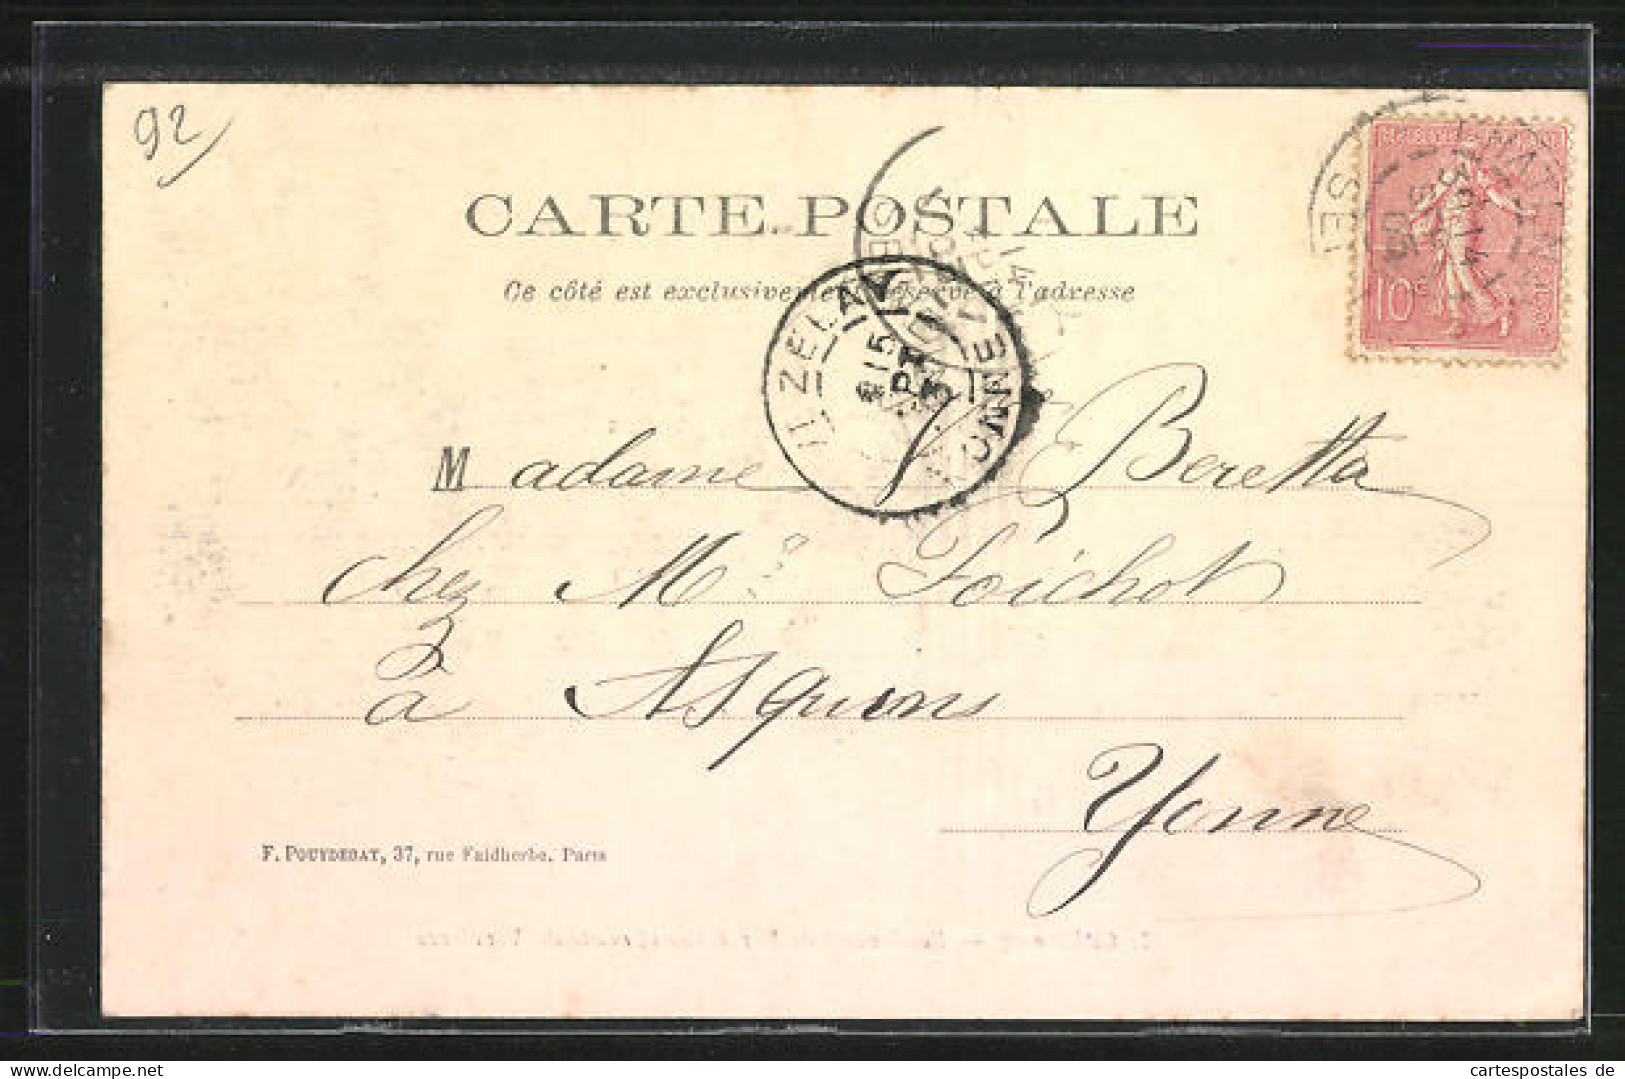 92
CARTE POSTALE
Ce côté est exclusivement réservé à l'adresse
10c
14
05
SEI
15
YONNE
Madame Vve Beretta
chez Mr Foichot
à Asquins
Yonne
F. POUYDEBAT, 37, rue Faidherbe. Paris
cartespostales de